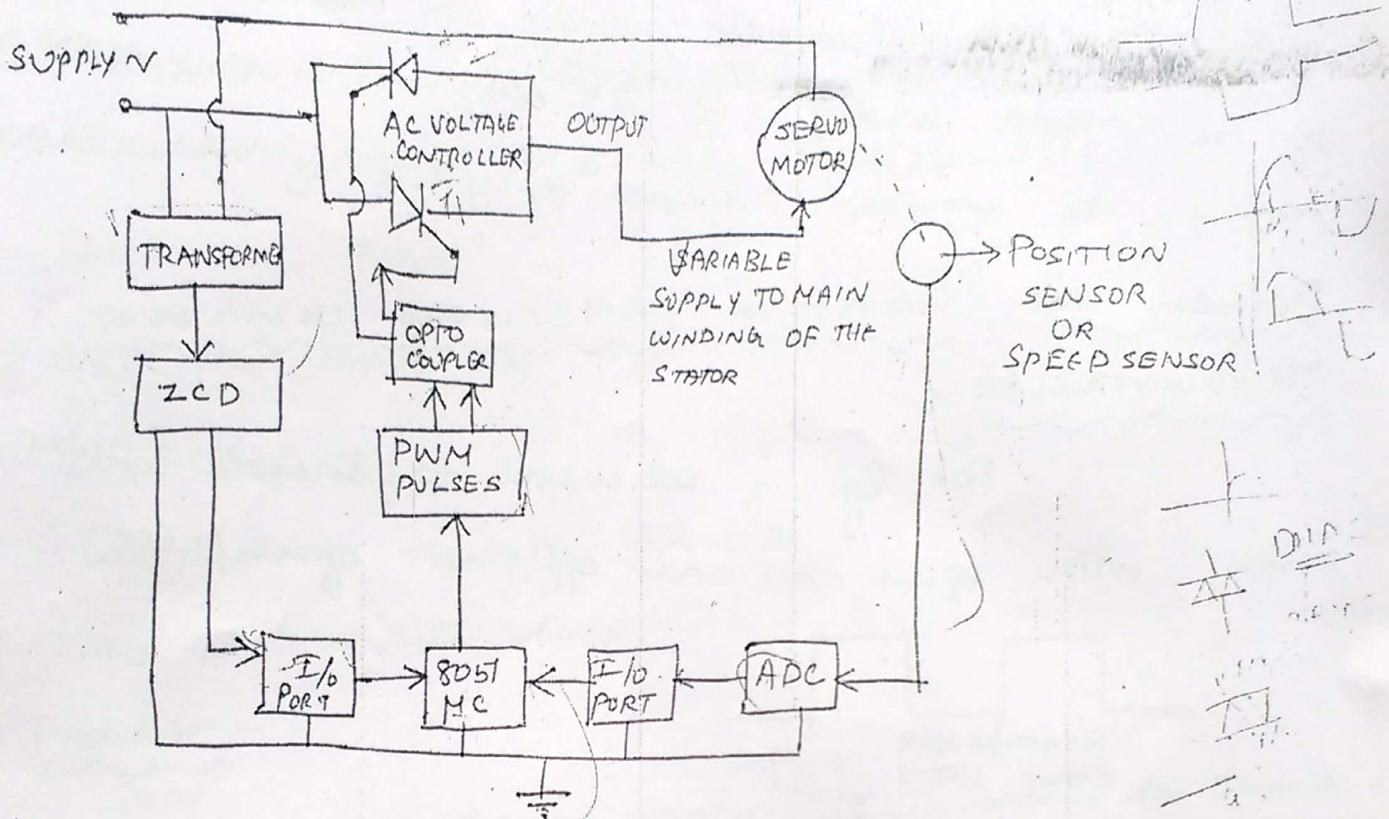 SUPPLY ~
AC VOLTAGE
CONTROLLER
OUTPUT
SERVO
MOTOR
TRANSFORME
VARIABLE
SUPPLY TO MAIN
WINDING OF THE
STATOR
POSITION
SENSOR
OR
SPEED SENSOR
OPTO
COUPLER
ZCD
PWM
PULSES
I/O
PORT
8051
MC
I/O
PORT
ADC